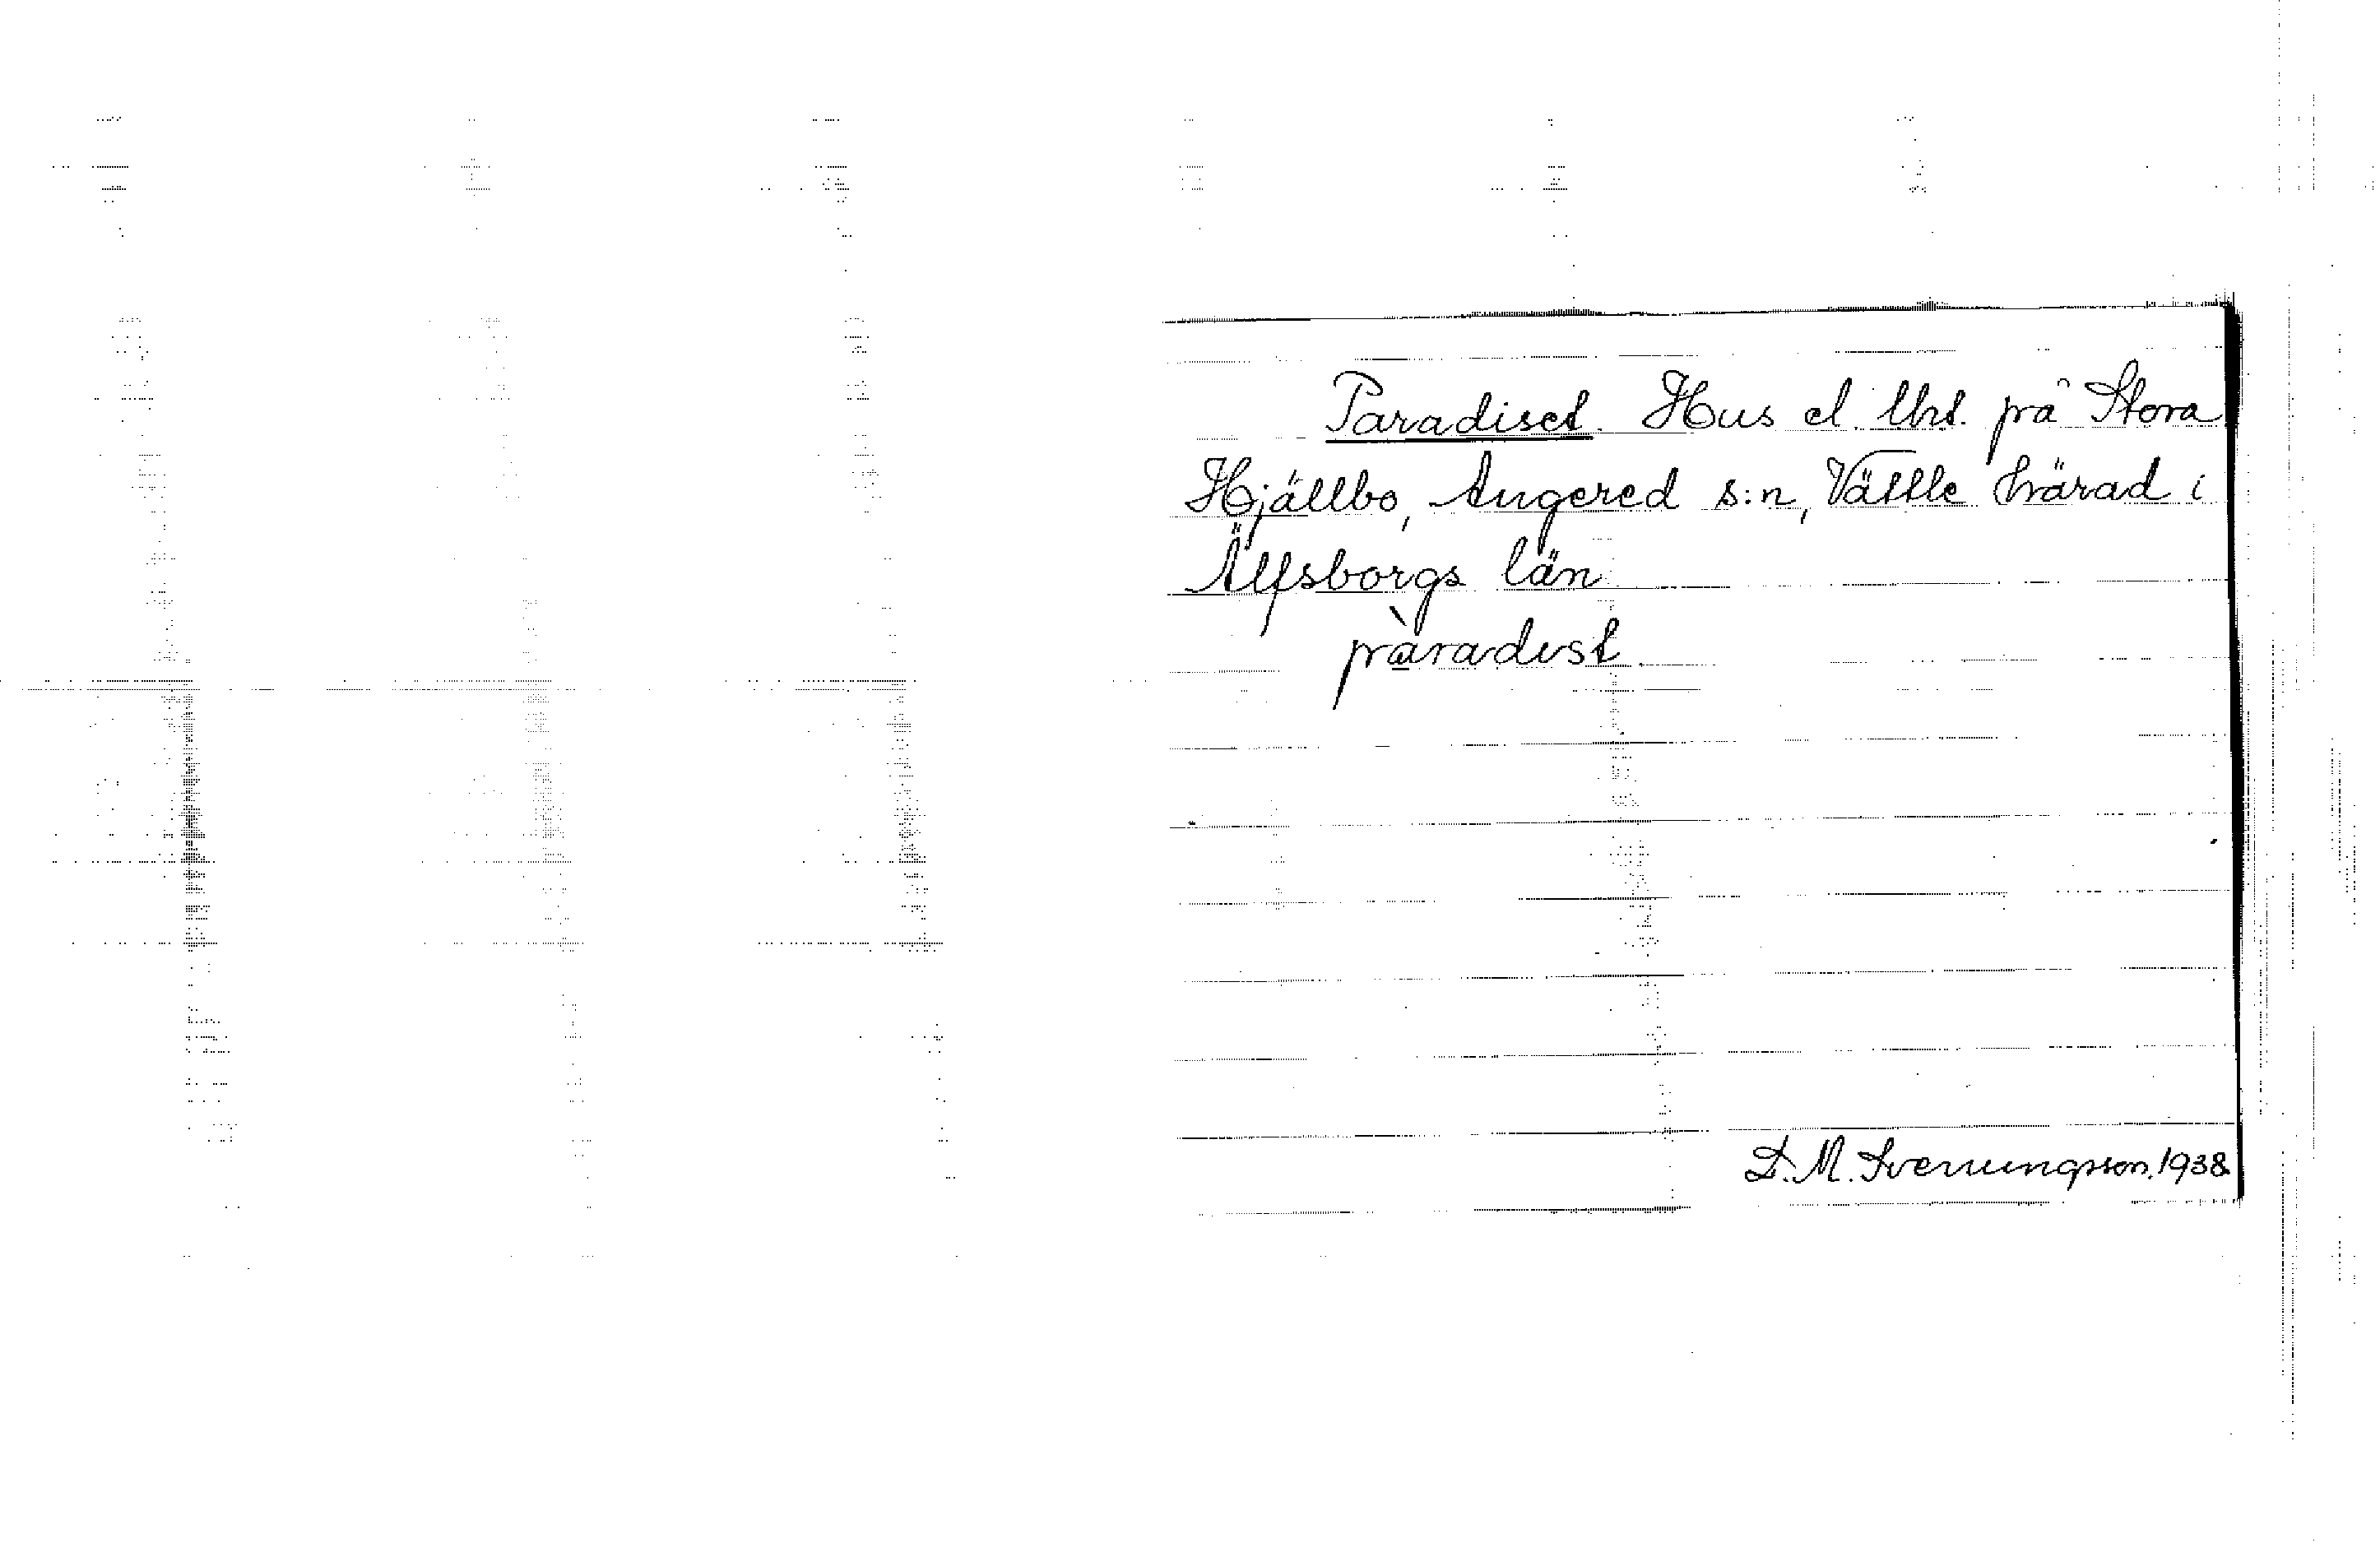 Paradiset. Hus el. lht. på Stora
Hjällbo, Angered s:n, Vättle härad i
Älfsborgs län
pàradist
D. M. Svenungsson. 1938